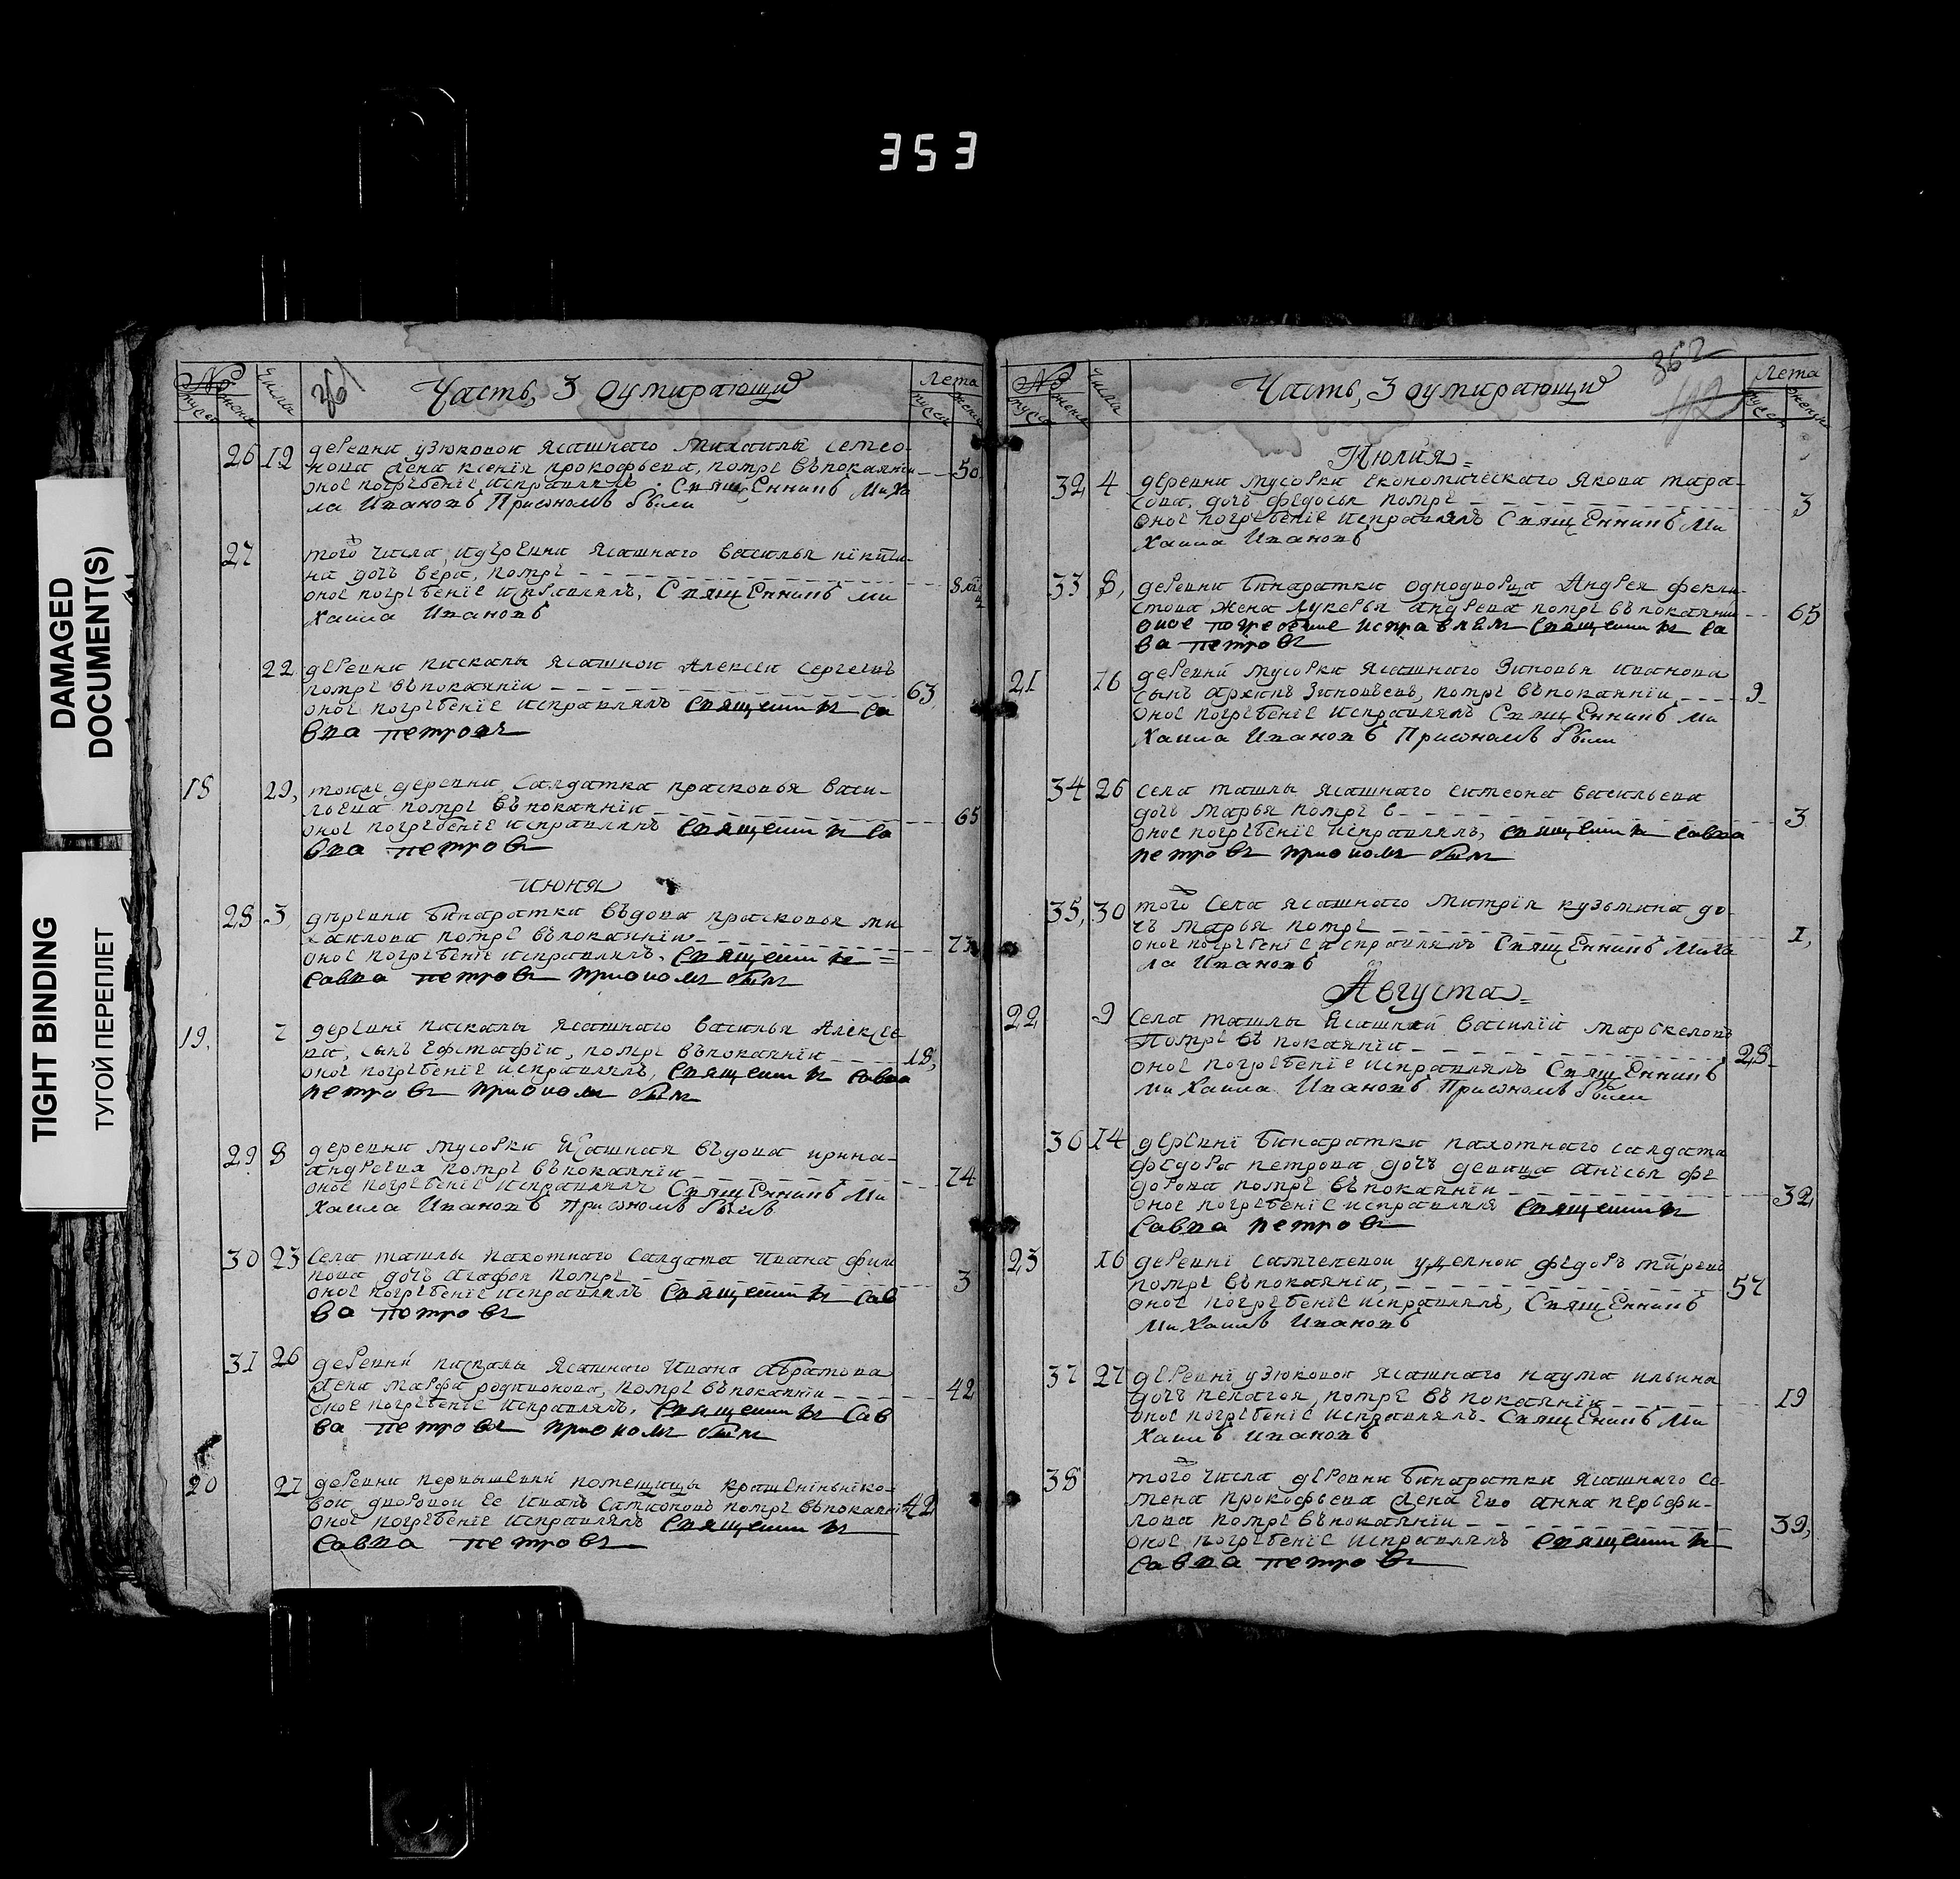 353
DAMAGED
DOCUMENT(S)
TIGHT BINDING
ТУГОЙ ПЕРЕПЛЕТ
№ Числа 361 Часть, 3 оумирающиѯ Лета
26 19 деревни узюковой ясашнаго михаилы семео-
нова жена ксенїя прокофьева, помре въпокаянїи 50
оное погребенїе исправлялъ. Священникъ Миха
ла Ивановъ Присемъ были
27 того числа, и деревни ясашнаго василья никити-
на дочь вера, помре
оное погребенїе исправлялъ, Священникъ ми
хаила Ивановъ
22 деревни пискалы ясашнои Алексеи сергеевъ
помре въпокаянїи 63
оное погребенїе исправлялъ священникъ са
вва петровъ
18 29, тоиже деревни, салдатка прасковья васи-
льева помре въпокаянїи 65
оное погребенїе исправлялъ священникъ са
вва петровъ
июня
28 3, деревни бинаратки въдова прасковья ми
хаилова помре въпокаянїи 73
оное погребенїе исправлялъ, священникъ =
савва петровъ приономъ былъ
19. 7 деревнї пискалы ясашнаго василья Алексее
ва, сынъ Ефстафїи, помре въпокаянїи 18,
оное погребенїе исправлялъ, священникъ савва
петровъ приономъ былъ
29 8 деревни мусорки ясашная въдова ирина
андреева помре въпокаянїи 74
оное погребенїе исправлялъ Священникъ Ми
хаила Ивановъ приономъ былъ
30 23 Села ташлы пахотнаго салдата Ивана фили
пова дочь агафея помре 3
оное погребенїе исправлялъ священникъ сав
ва петровъ
31 26 деревни пискалы ясашнаго Ивана абрамова
жена марфа родионова, помре въпокаянїи 42
оное погребенїе исправлялъ, священникъ сав
ва петровъ приономъ былъ
20 27 деревни первышевки помещицы крашенїньнїко-
вои дворовои ее иванъ самсоновъ помре въпокаянї 42
оное погребенїе исправлялъ священникъ
савва петровъ
№ Числа Часть, 3 оумирающиѯ 362 Лета
Июлия=
32 4 деревни мусорки економическаго якова тара-
сова, дочь федосья помре 3
оное погребенїе исправлялъ Священникъ Ми
хаила Ивановъ
33 8, деревни бинаратки однодворца Андрея фекли-
стова жена лукерья андреева помре въпокаянии 65
оное погребение исправлялъ священникъ са
ва петровъ
21 16 деревни мусорки ясашнаго Зиновья иванова
сынъ архипъ зиновьевъ, помре въпокаянїи 9
оное погребенїе исправлялъ Священникъ Ми
хаила Ивановъ Приономъ были
34 26 села ташлы ясашнаго симеона васильева
дочь марья помре в 3
оное погребенїе исправлялъ, священникъ савва
петровъ приономъ былъ
35, 30 того села ясашнаго митрїя кузьмина до-
чь марья помре 1,
оное погребенїе исправлялъ Священникъ Миха
ла Ивановъ
Августа=
22 9 села ташлы ясашнай василїй маръкеловъ
помре въ покаянїи 28
оное погребенїе исправлялъ Священникъ
михаила Ивановъ Приономъ были
36 14 деревнї бинаратки пахотнаго салдата
федора петрова дочь девица анисья фе
дорова помре въпокаянїи 32
оное погребенїе исправлялъ священникъ
савва петровъ
23 16 деревнї самчелеевои уделнои федоръ
помре въпокаянїи, 57
оное погребенїе исправлялъ, Священникъ
михаилъ Ивановъ
37 27 деревнї узюковои ясашнаго наума ильина
дочь пелагея, помре въ покаянїи 19
оное погребенїе исправлялъ. Священикъ Ми
хаилъ ивановъ
38 того числа деревни бинаратки ясашнаго се-
мена прокофьева жена ево анна перьфи-
лова помре въпокаянїи 39,
оное погребенїе исправлялъ священникъ
савва петровъ